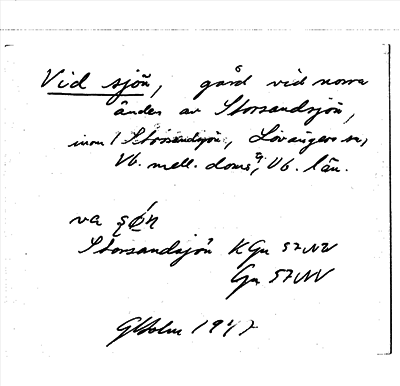 Vid sjön, gård vid norra
änden av Storsandsjön,
inom / Storsandsjön, Lövångers sn,
Vb. mell. doms., Vb. län.
va
Storsandsjön K Gu 57 NV
Gu 57 NV
GHolm 1947